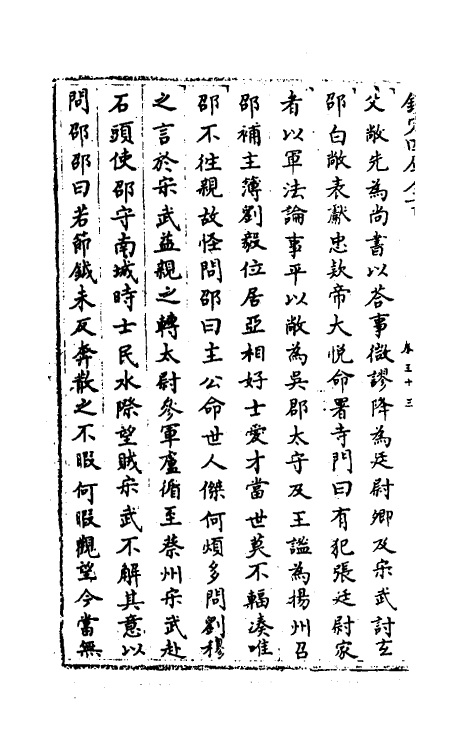 欽定四庫全書
卷三十三
父敞先為尚書以答事微謬降為廷尉卿及宋武討玄
邵白敞表獻忠款帝大悅命署寺門曰有犯張廷尉家
者以軍法論事平以敞為吳郡太守及王謐為揚州召
邵補主簿劉毅位居亞相好士愛才當世莫不輻湊唯
邵不往親故怪問邵曰主公命世人傑何煩多問劉穆
之言於宋武益親之轉太尉參軍盧循至蔡州宋武赴
石頭使邵守南城時士民水際望賊宋武不解其意以
問邵邵曰若節鉞未反奔散之不暇何暇觀望今當無